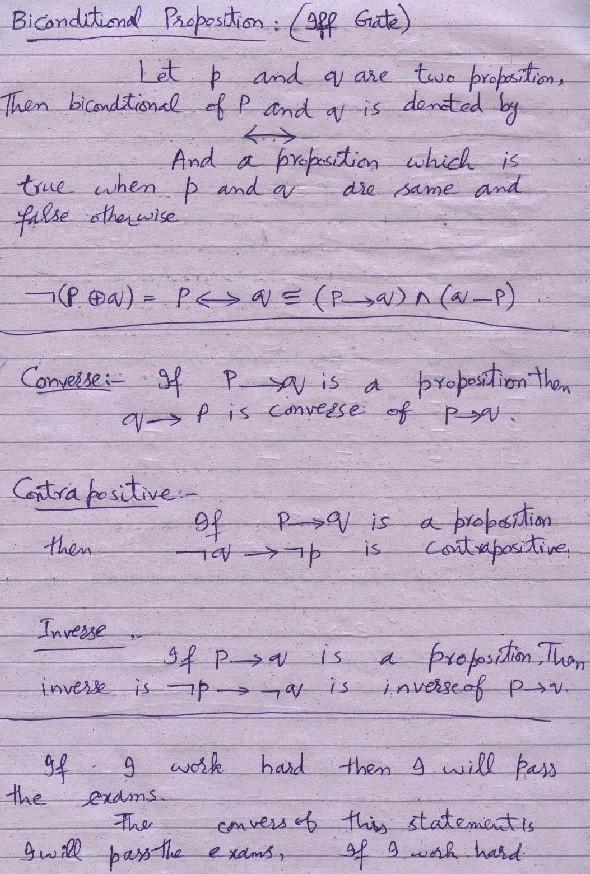 Biconditional Proposition: (Iff Gate)
Let p and q are two proposition,
Then biconditional of P and q is denoted by
↔
And a proposition which is
true when p and q are same and
false otherwise
¬(P ⊕ q) = P ↔ q ≡ (P → q) ∧ (q — P)
Converse:- If P → q is a proposition then
q → P is converse of p → q.
Contrapositive:-
If P → q is a proposition
then ¬q → ¬p is contrapositive.
Inverse :-
If P → q is a proposition, Then
inverse is ¬p → ¬q is inverse of P → q.
If I work hard then I will pass
the exams.
The convers of this statement is
I will pass the exams, If I work hard